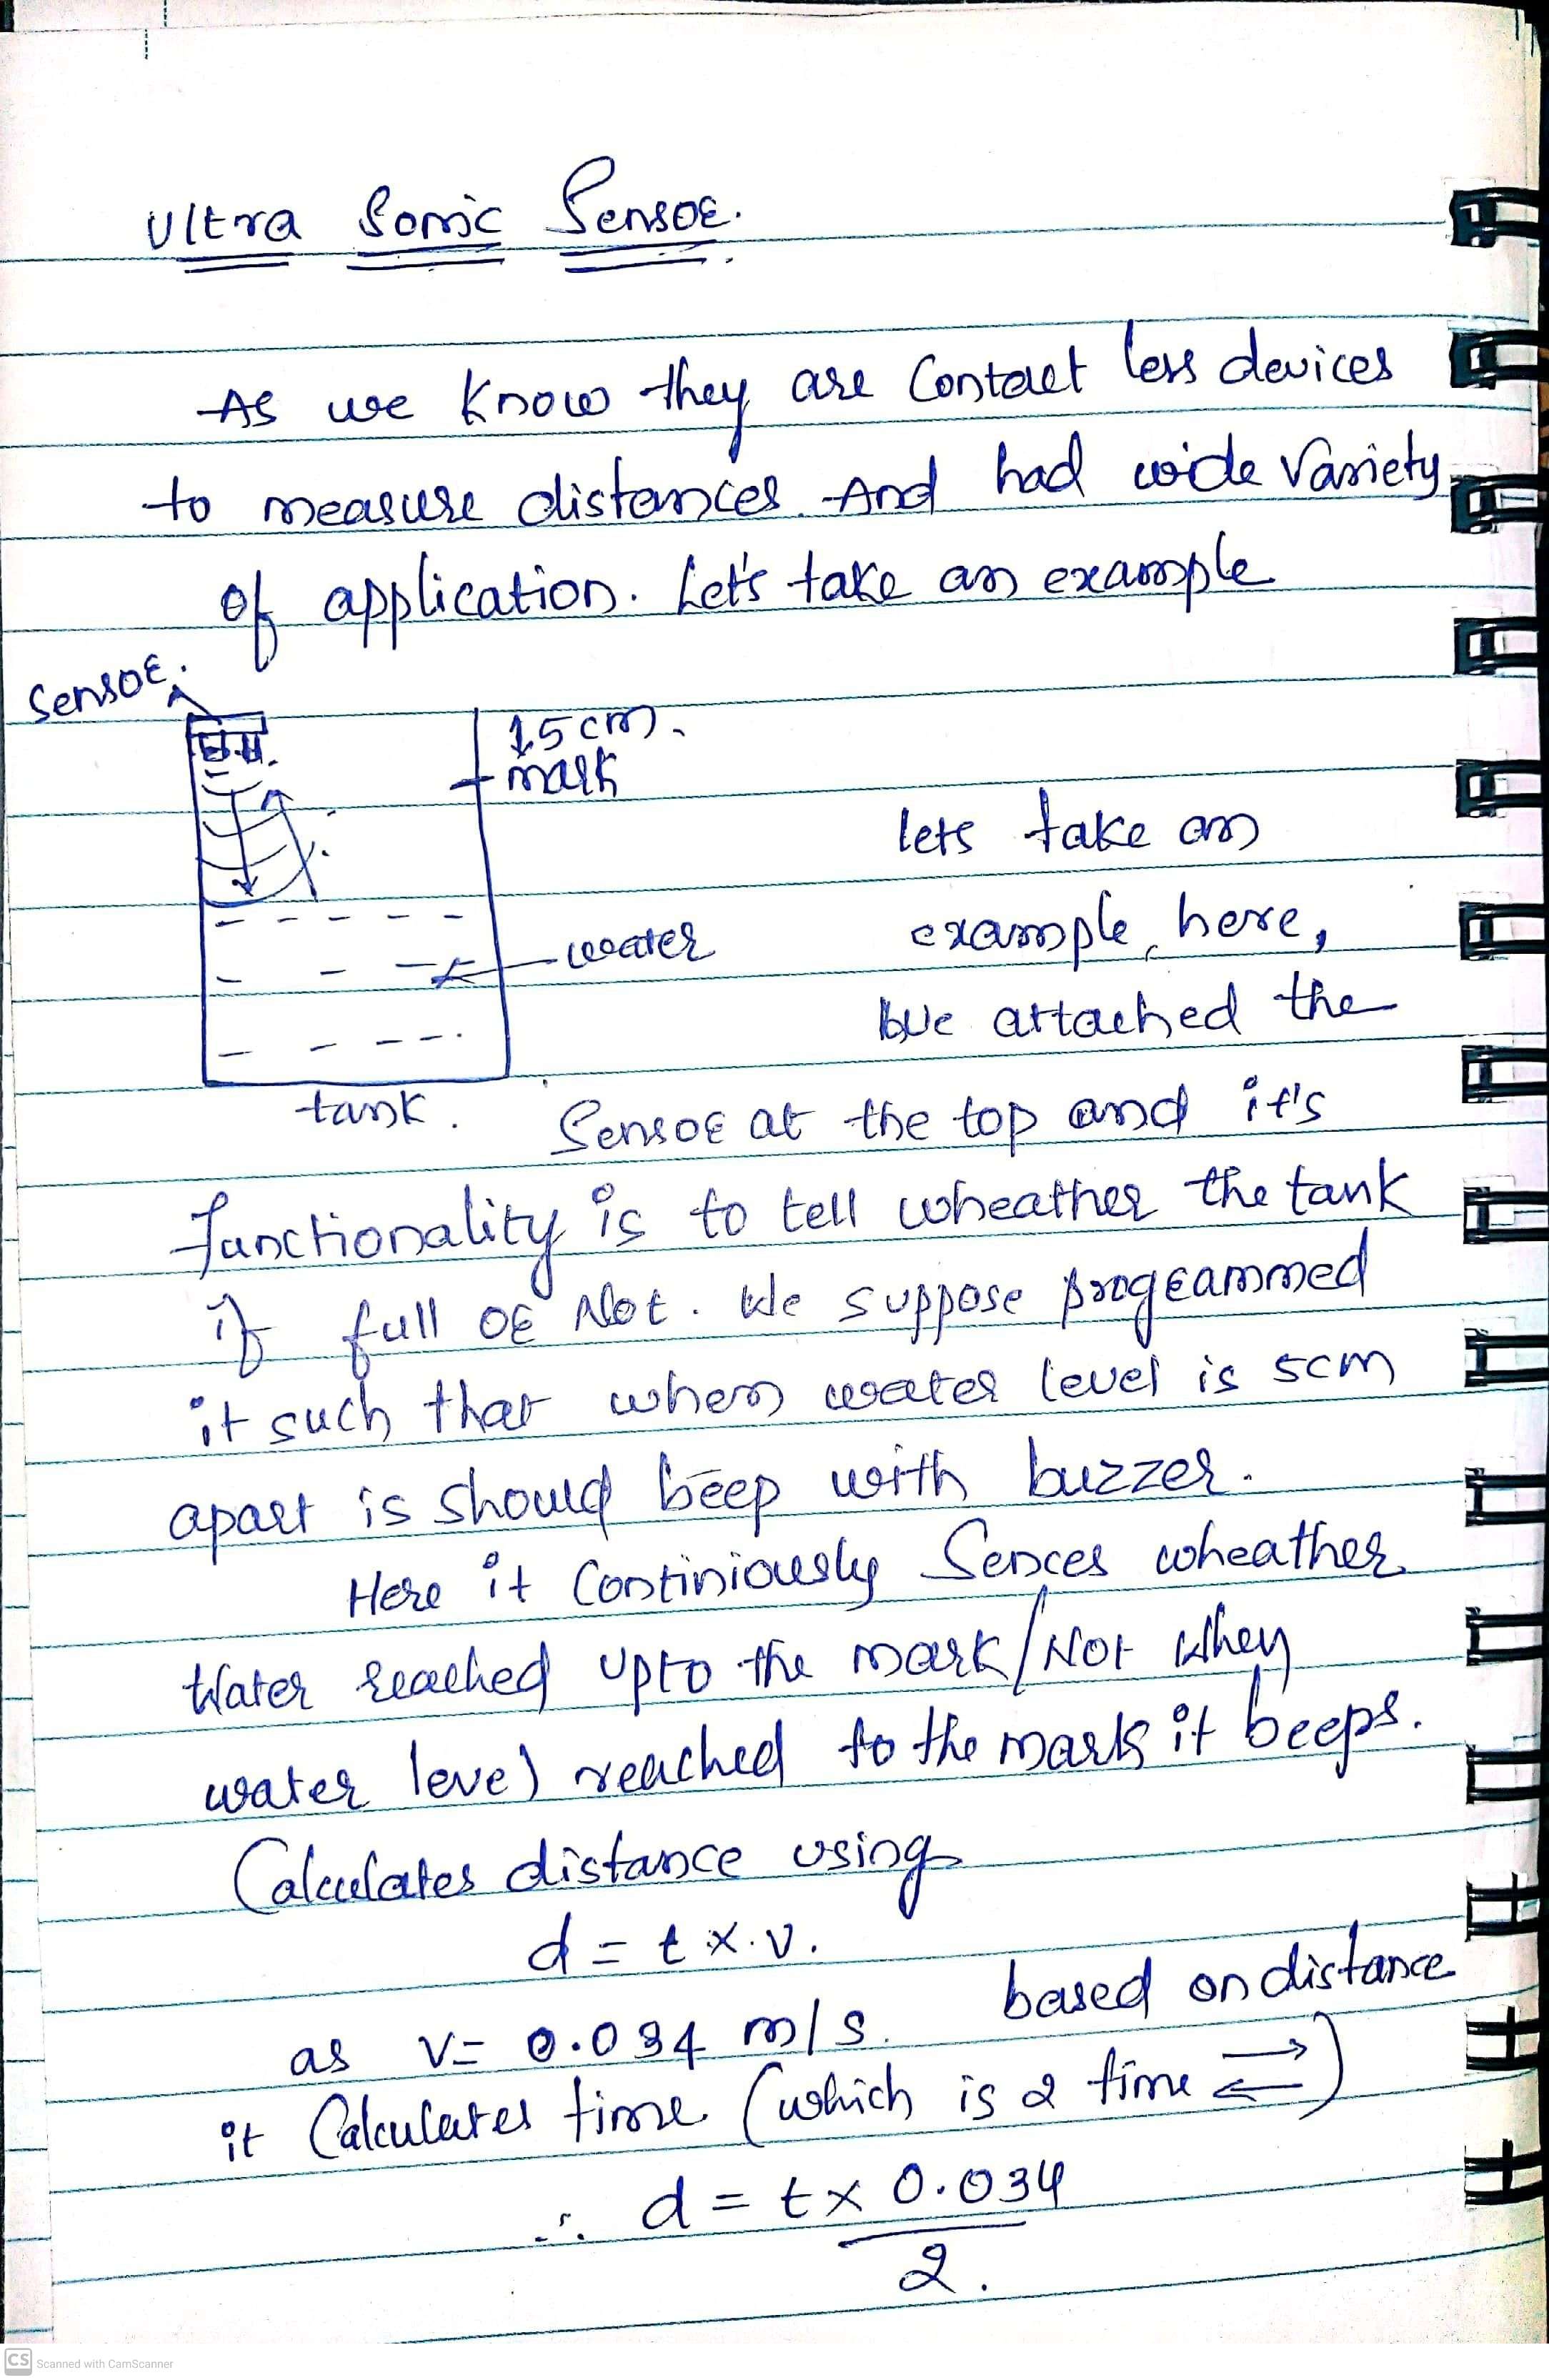 Ultra Sonic Sensor.
As we know they are Contact less devices
to measure distances. And had wide variety
of application. Let's take an example
Sensor.
15cm.
mark
lets take an
example, here,
water
We attached the
tank.
Sensor at the top and it's
functionality is to tell wheather the tank
if full or Not. We suppose programmed
it such that when water level is 5cm
apart is should beep with buzzer.
Here it Continiously Sences wheather
Water reached upto the mark/Not When
water level reached to the mark it beeps.
Calculates distance using
d = t x v.
as v= 0.034 m/s. based on distance
it Calculates time (which is 2 time ⇄)
∴ d = t x 0.034
2.
CS Scanned with CamScanner